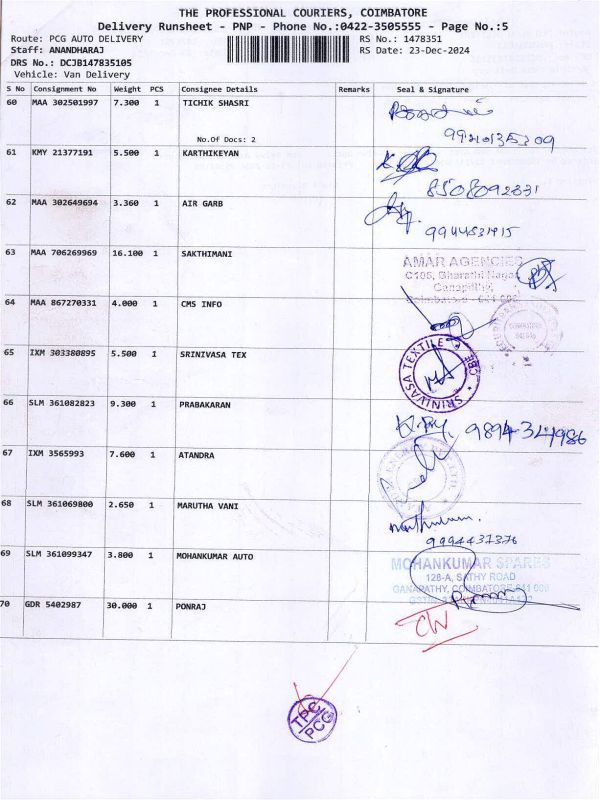 THE PROFESSIONAL COURIERS, COIMBATORE
Delivery Runsheet - PNP - Phone No.:0422-3505555 - Page No.:5
Route: PCG AUTO DELIVERY RS No.: 1478351
Staff: ANANDHARAJ RS Date: 23-Dec-2024
DRS No.: DCJB147835105
Vehicle: Van Delivery
S No Consignment No Weight PCS Consignee Details Remarks Seal & Signature
60 MAA 302501997 7.300 1 TICHIK SHASRI
No.Of Docs: 2
61 KMY 21377191 5.500 1 KARTHIKEYAN
8508092831
62 MAA 302649694 3.360 1 AIR GARB
63 MAA 706269969 16.100 1 SAKTHIMANI
AMAR AGENCIES
C108, Bharathi Nagar
Ganapathy,
Coimbatore - 641 006
64 MAA 867270331 4.000 1 CMS INFO
65 IXM 303380895 5.500 1 SRINIVASA TEX
SRINIVASA TEXTILE CBE
66 SLM 361082823 9.300 1 PRABAKARAN
67 IXM 3565993 7.600 1 ATANDRA
68 SLM 361069800 2.650 1 MARUTHA VANI
9994437376
69 SLM 361099347 3.800 1 MOHANKUMAR AUTO
MOHANKUMAR SPARES
128-A, SATHY ROAD
GANAPATHY, COIMBATORE 641 006
70 GDR 5402987 30.000 1 PONRAJ
CW
TPC/
PCG